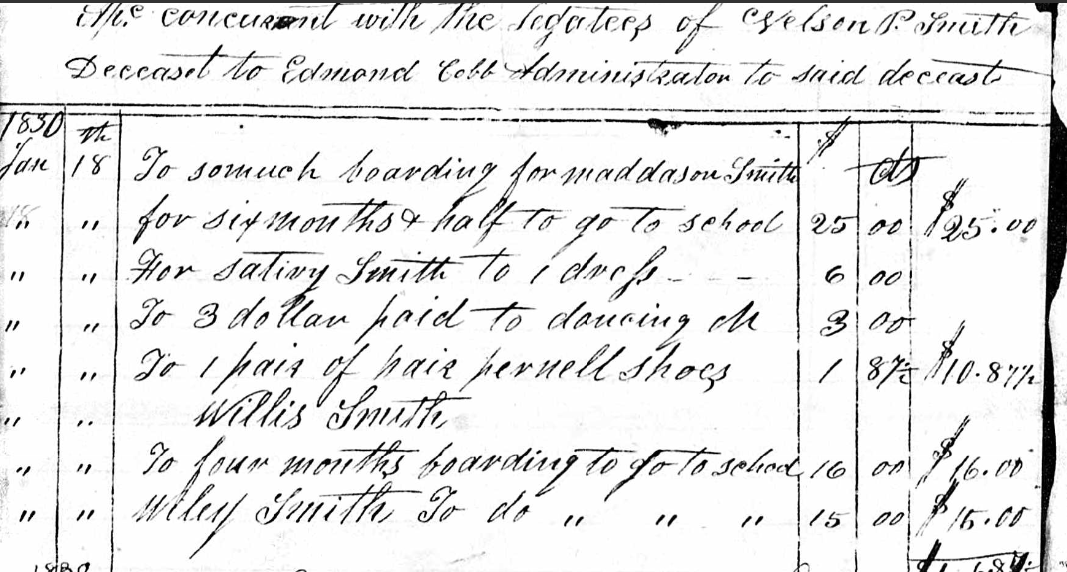 concurrent with the Legatees of Nelson P. Smith
Deceaset to Edmond Cobb Administrator to said deceast
1830 th $ cts
Jan 18 To somuch boarding for maddason Smith
18 " for six months & half to go to school 25 00 $25.00
" " For Satiry Smith to 1 dress - - - 6 00
" " To 3 dollar paid to dancing M 3 00
" " To 1 pair of pair pernell shoes 1 87½ $10.87½
" " Willis Smith
" " To four months boarding to go to school 16 00 $16.00
" " Wiley Smith To do " " " 15 00 $15.00